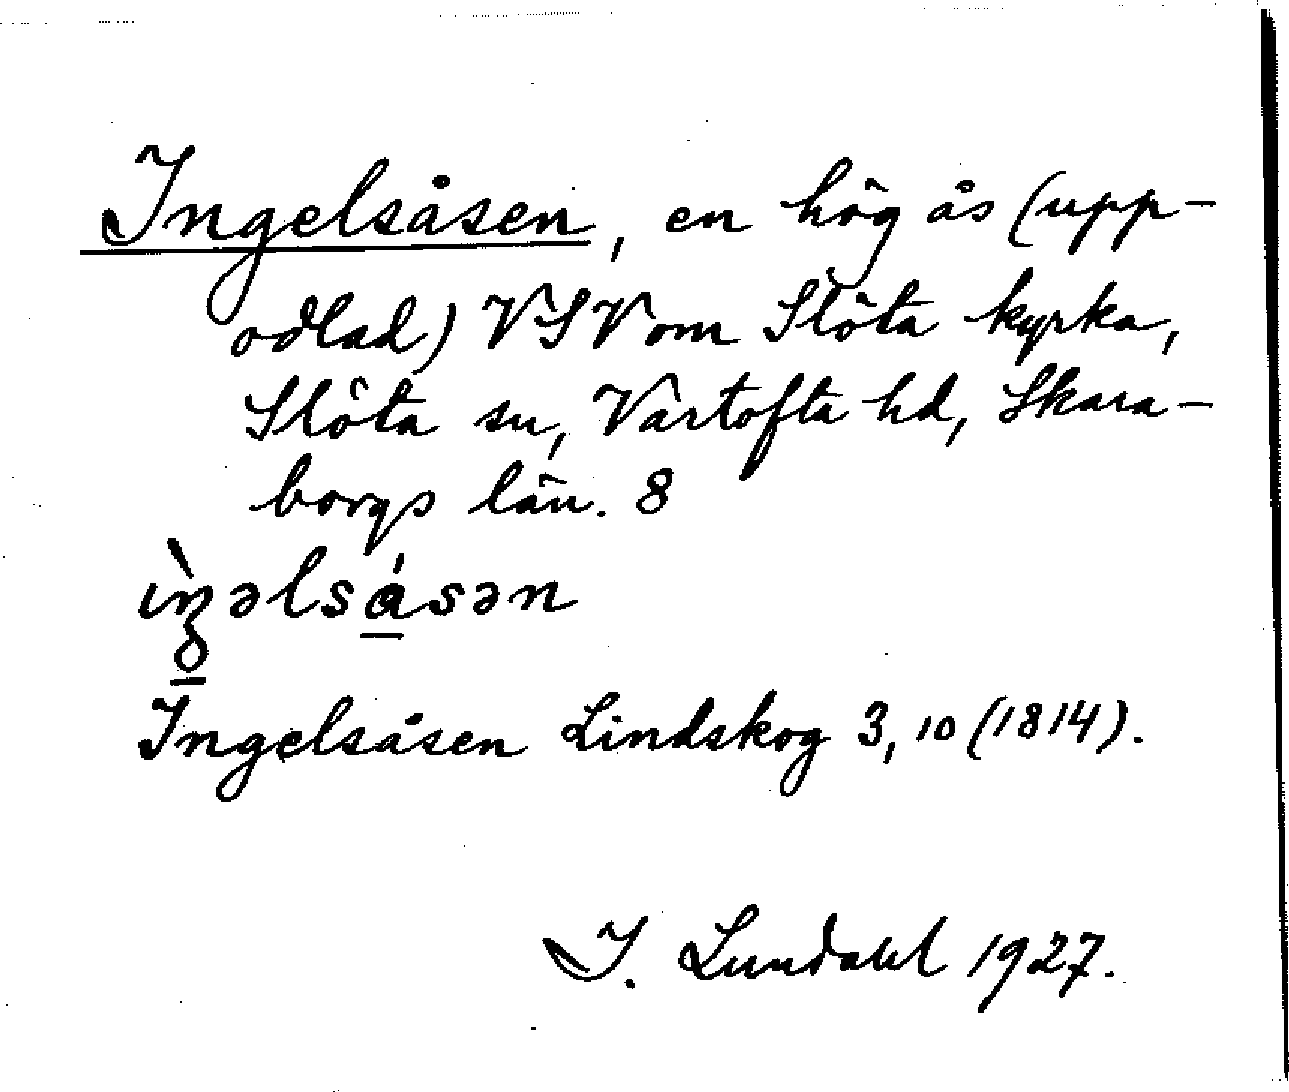 Ingelsåsen, en hög ås (upp-
odlad) VSV om Slöta kyrka,
Slöta sn, Vartofta hd, Skara-
borgs län. 8
Ingelsåsen Lindskog 3, 10 (1814).
I. Lundahl 1927.